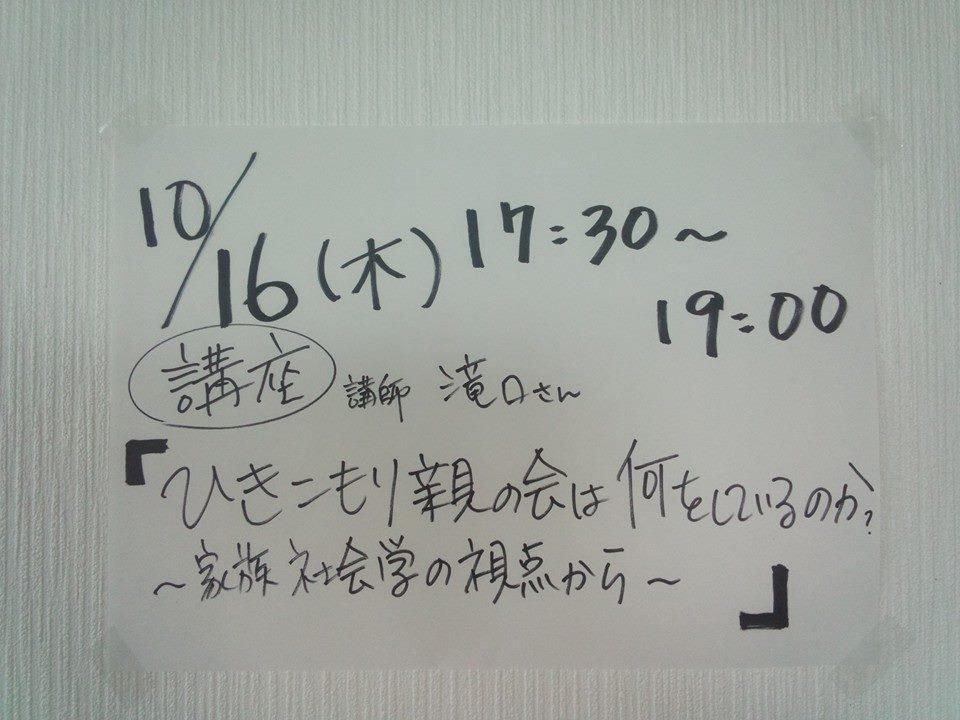 10/16(木) 17:30~
19:00
講座 講師 滝口さん
『ひきこもり親の会は何をしているのか?
~家族社会学の視点から~』